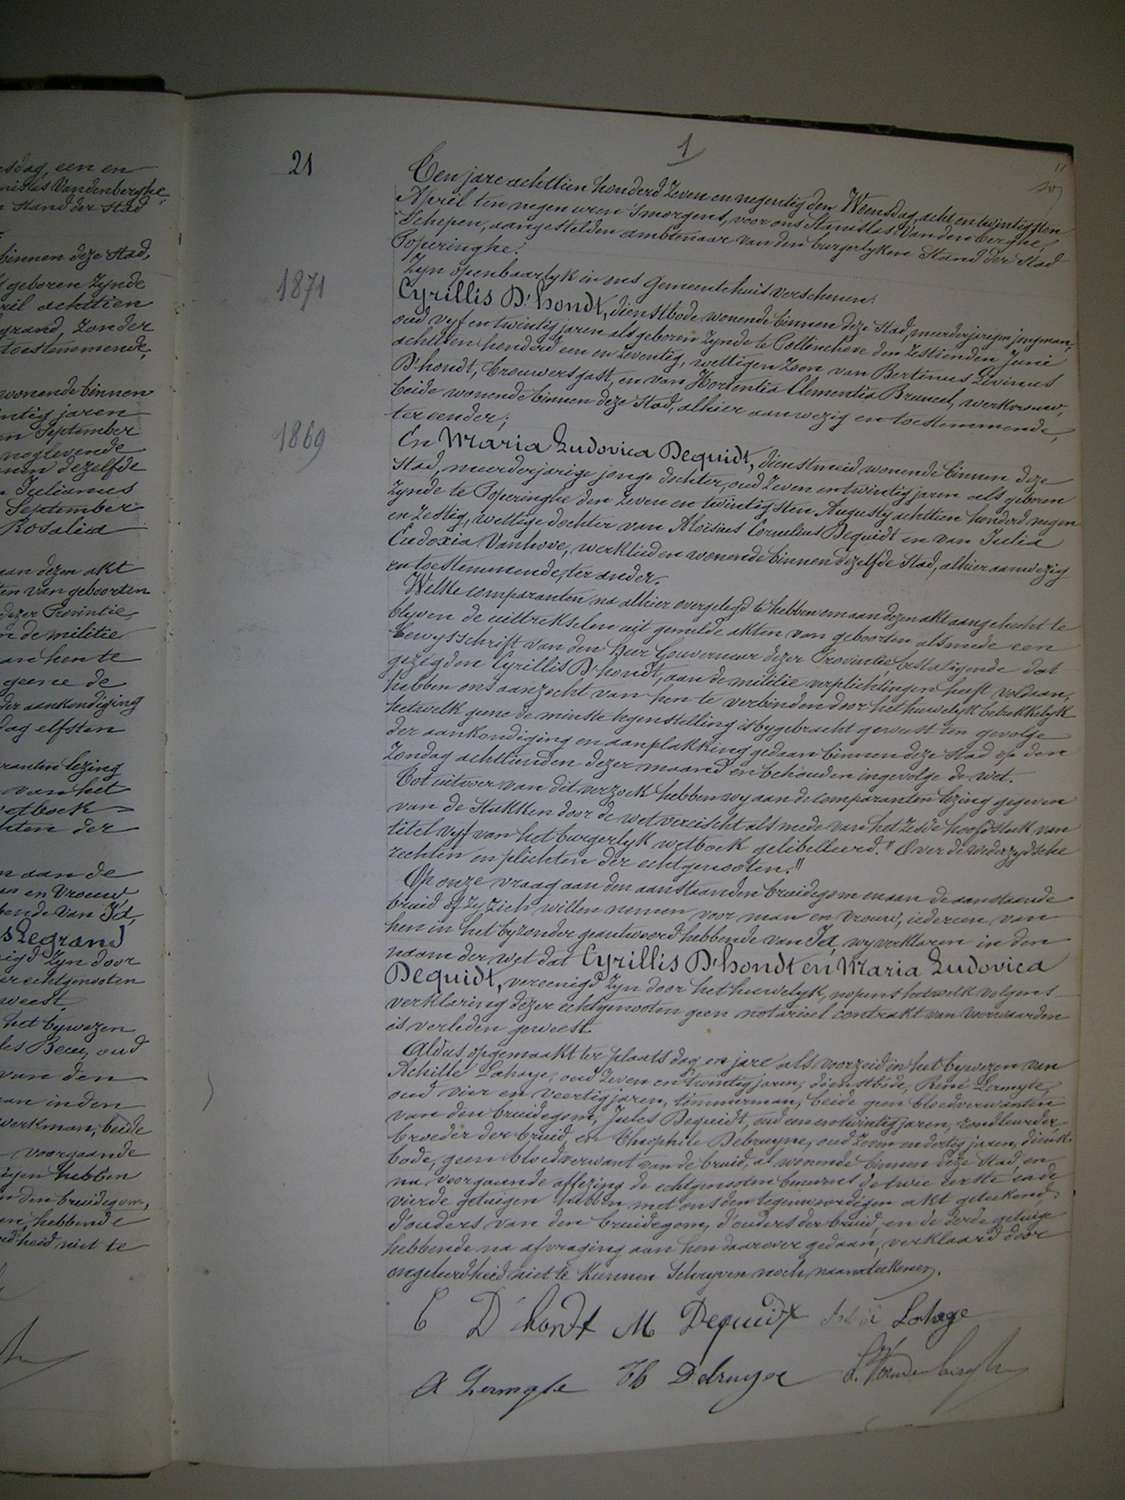 sdag, een en
nislas Vandenberghe,
n Stand der Stad
binnen deze Stad,
geboren Zynde
ril achttien
grand, Zonder
toestemmende,
wonende binnen
intig jaren
an September
neglevende
dezelfde
Julianus
September
Rosalia
aan dezen akt
ten van geboorten
dezer Provintie
n de militie
hen te
geene de
der aankondiging
dag elfsten
ranten lezing
van het
wetboek
hten der
n aan de
en Vrouw
bende van Ja,
s Legrand
nigd Zyn door
er echtgenooten
weest.
het bywezen
les Beeu, oud
van den
an in den
werkman, beide
voorgaande
igen hebben
n den bruidegom,
en, hebbende
erdheid niet te
1
21
Ten jare achttien honderd Zeven en negentig den Woensdag acht en twintigsten
April ten negen uren 's morgens, voor ons Stanislas Vandenberghe,
Schepen, aangestelden ambtenaar van den burgerlyken Stand der Stad
Poperinghe.
Zyn openbaarlyk in ons Gemeentehuis verschenen:
1871
Cyrillis D'hondt, dienstbode wonende binnen deze Stad, meerderjarigen jongman,
oud vyf en twintig jaren als geboren Zynde te Pollinchove den Zestienden Juni
achttien honderd een en Zeventig, wettigen Zoon van Bertinus Livinus
D'hondt, brouwersgast, en van Hortentia Clementia Bruneel, werkvrouw,
beide wonende binnen deze Stad, alhier aanwezig en toestemmende,
ter eender;
1869
En Maria Ludovica Dequidt, dienstmeid wonende binnen deze
Stad, meerderjarige jonge dochter, oud Zeven en twintig jaren als geboren
Zynde te Poperinghe den Zeven en twintigsten Augusty achttien honderd negen
en Zestig, wettige dochter van Aloisius Cornelius Dequidt en van Julia
Eudoxia Vanhove, werklieden wonende binnen dezelfde Stad, alhier aanwezig
en toestemmende, ter ander.
Welke comparanten na alhier overgelegd te hebben om aan dezen akt aangehecht te
blyven de uittrekselen uit gemelde akten van geboorten alsmede een
bewysschrift van den Heer Gouverneur dezer Provintie, bestatigende dat
gezegden Cyrillis D'hondt, aan de militie verplichtingen heeft voldaan,
hebben ons aanzocht van hen te verbinden door het huwelyk betrekkelyk
hetwelk geene de minste tegenstelling is bygebracht geweest ten gevolge
der aankondiging en aanplakking gedaan binnen deze Stad op den
Zondag achttienden dezer maand en behouden ingevolge de wet.
Tot uitvoer van dit verzoek hebben wy aan de comparanten lezing gegeven
van de Stukken door de wet vereischt als mede van het Zesde hoofdstuk van
titel vyf van het burgerlyk wetboek gelibelleerd: "Over de wederzydsche
rechten en plichten der echtgenooten."
Op onze vraag aan den aanstaanden bruidegom en aan de aanstaande
bruid of Zy Zich willen nemen voor man en vrouw, iedereen van
hen in het byzonder geantwoord hebbende van Ja, wy verklaren in den
naam der wet dat Cyrillis D'hondt en Maria Ludovica
Dequidt, vereenigd Zyn door het huwelyk, nopens hetwelk volgens
verklaring dezer echtgenooten geen notarieel contrakt van voorwaarden
is verleden geweest.
Aldus opgemaakt ter plaats dag en jare als voorzeid in het bywezen van
Achille Lahaye, oud Zeven en twintig jaren, dienstbode, René Lermyte,
oud vier en veertig jaren, timmerman, beide geen bloedverwanten
van den bruidegom, Jules Dequidt, oud een en twintig jaren, zondleurder
broeder der bruid, en Theophile Debruyne, oud Zeven en dertig jaren, dienst-
bode, geen bloedverwant van de bruid, al wonende binnen deze Stad, en
na voorgaande aflezing de echtgenooten benevens de twee eerste en de
vierde getuigen hebben met ons den tegenwoordigen akt geteekend,
d'ouders van den bruidegom, d'ouders der bruid, en de derde getuige
hebbende na afvraging aan hen daarover gedaan, verklaard door
ongeleerdheid niet te Kunnen Schryven noch naamteekenen.
C D'hondt M Dequidt Lahage
R Lermyte Th Debruyne S. Vandenberghe